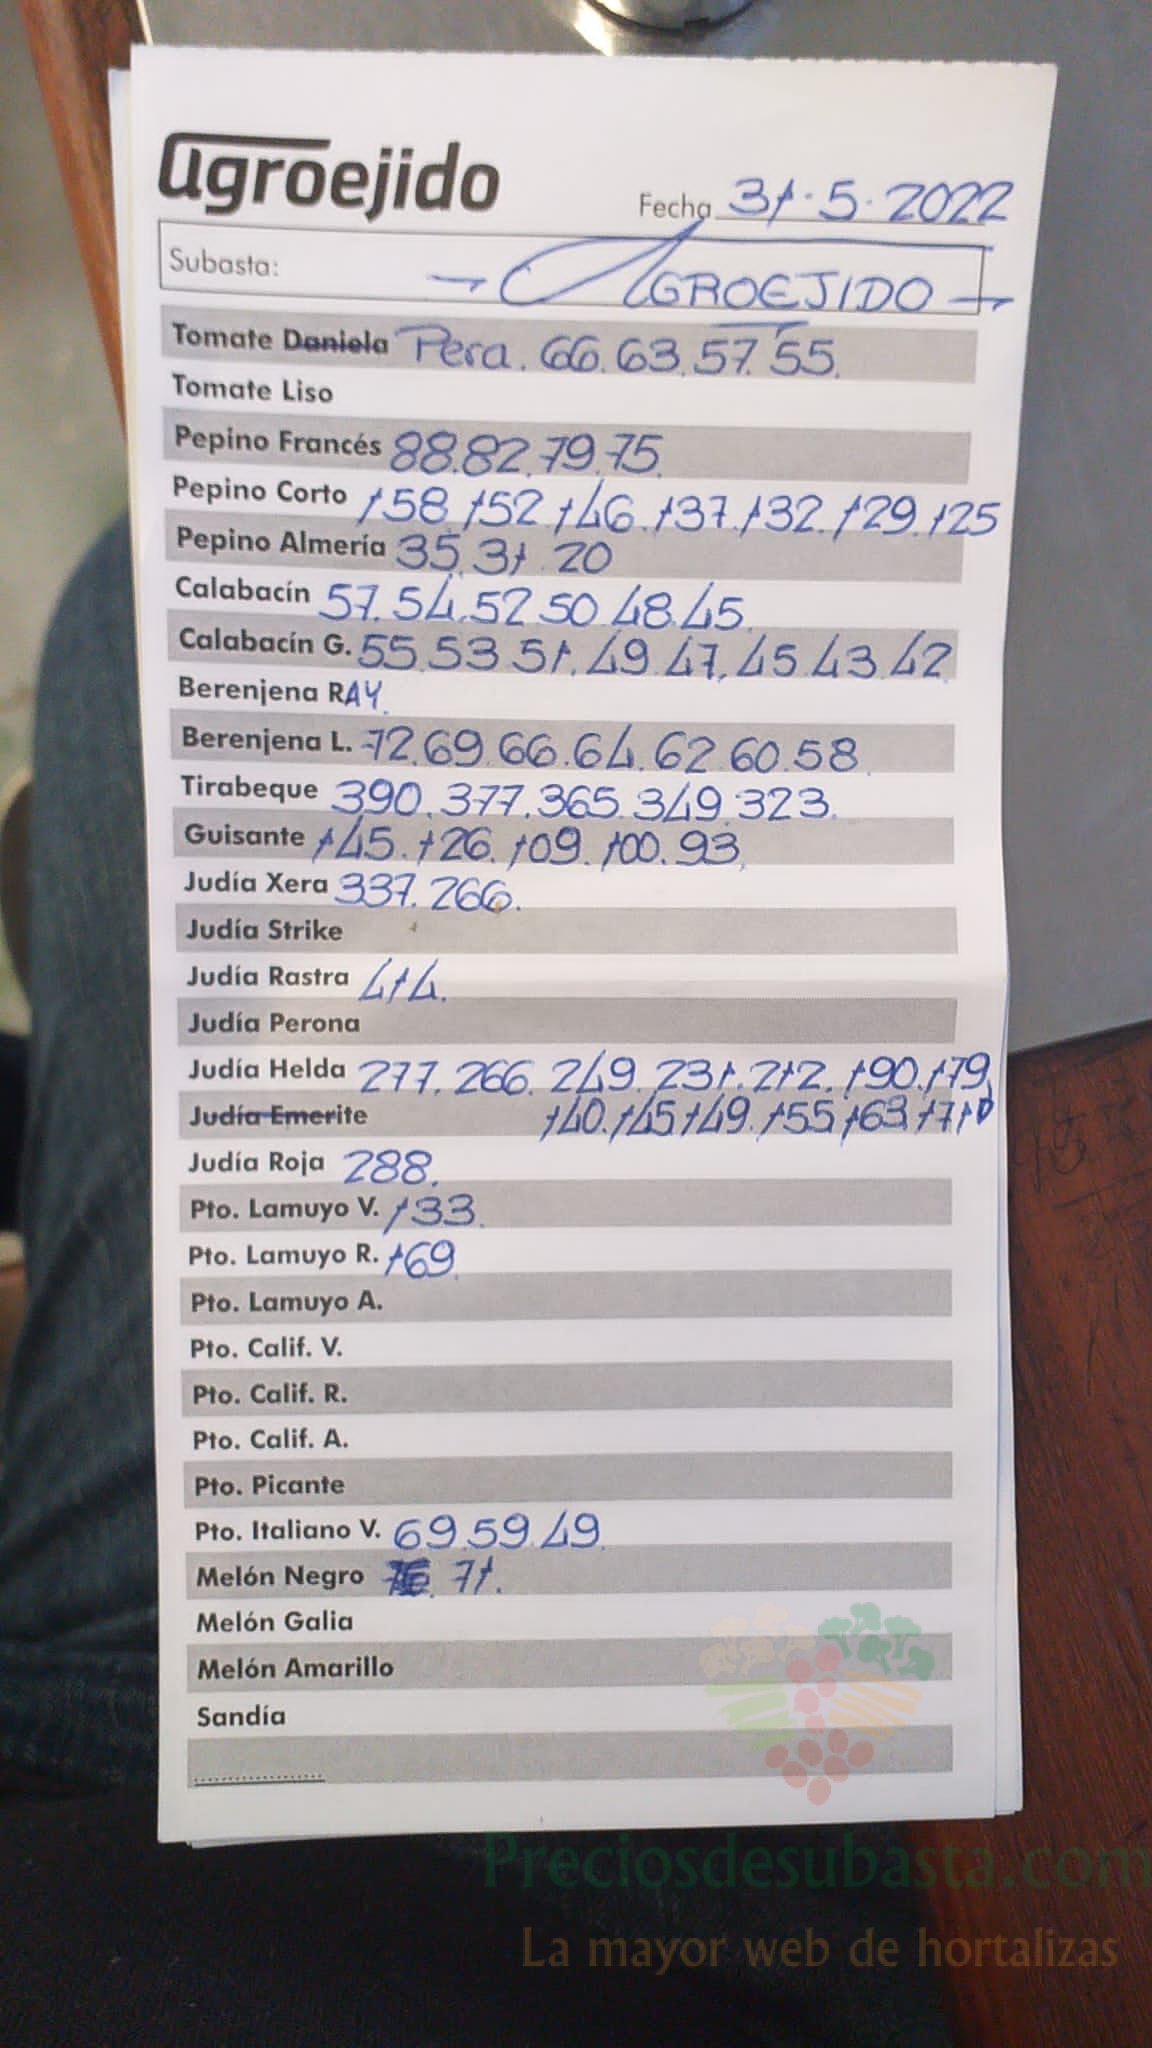 agroejido
Fecha 31.5.2022
Subasta: → AGROEJIDO →
Tomate Daniela Pera. 66.63.57.55.
Tomate Liso
Pepino Francés 88.82.79.75.
Pepino Corto 158.152.146.137.132.129.125
Pepino Almería 35.31.20
Calabacín 57.54.52.50.48.45.
Calabacín G. 55.53.51.49.47.45.43.42.
Berenjena RAY.
Berenjena L. 72.69.66.64.62.60.58.
Tirabeque 390.377.365.349.323.
Guisante 145.126.109.100.93.
Judía Xera 337.266.
Judía Strike
Judía Rastra 414.
Judía Perona
Judía Helda 277.266.249.231.212.190.179.
Judía Emerite 140.145.149.155.163.171
Judía Roja 288.
Pto. Lamuyo V. 133.
Pto. Lamuyo R. 169.
Pto. Lamuyo A.
Pto. Calif. V.
Pto. Calif. R.
Pto. Calif. A.
Pto. Picante
Pto. Italiano V. 69.59.49.
Melón Negro 71.
Melón Galia
Melón Amarillo
Sandía
Preciosdesubasta.com
La mayor web de hortalizas